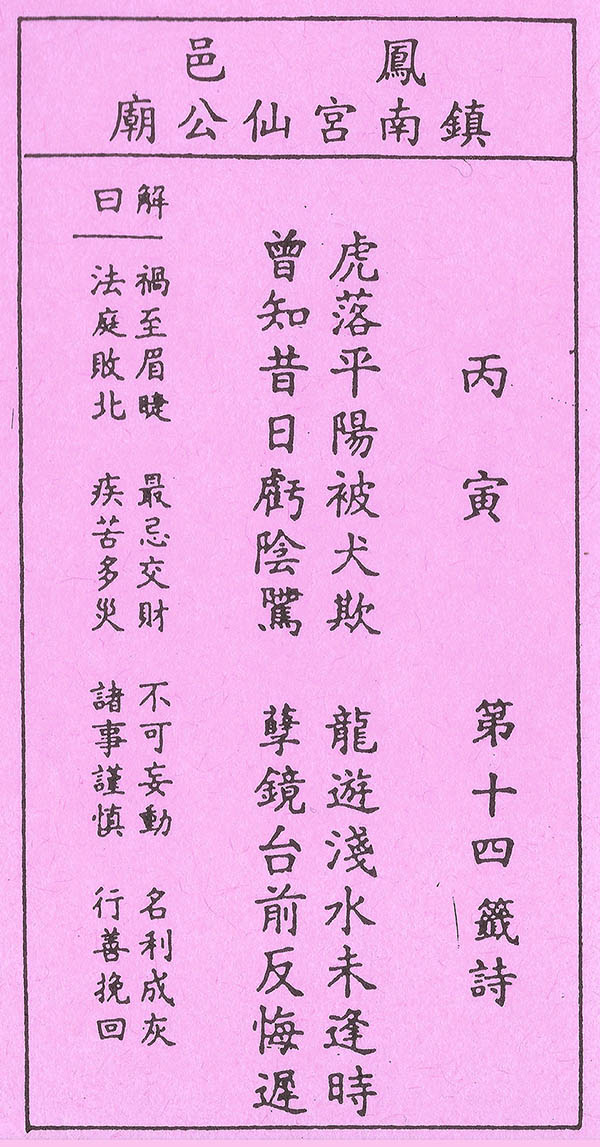 鳳邑
鎮南宮仙公廟
丙寅 第十四籤詩
虎落平陽被犬欺 龍遊淺水未逢時
曾知昔日虧陰騭 孽鏡台前反悔遲
解曰
禍至眉睫 最忌交財 不可妄動 名利成灰
法庭敗北 疾苦多災 諸事謹慎 行善挽回